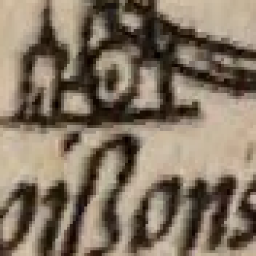 oißons